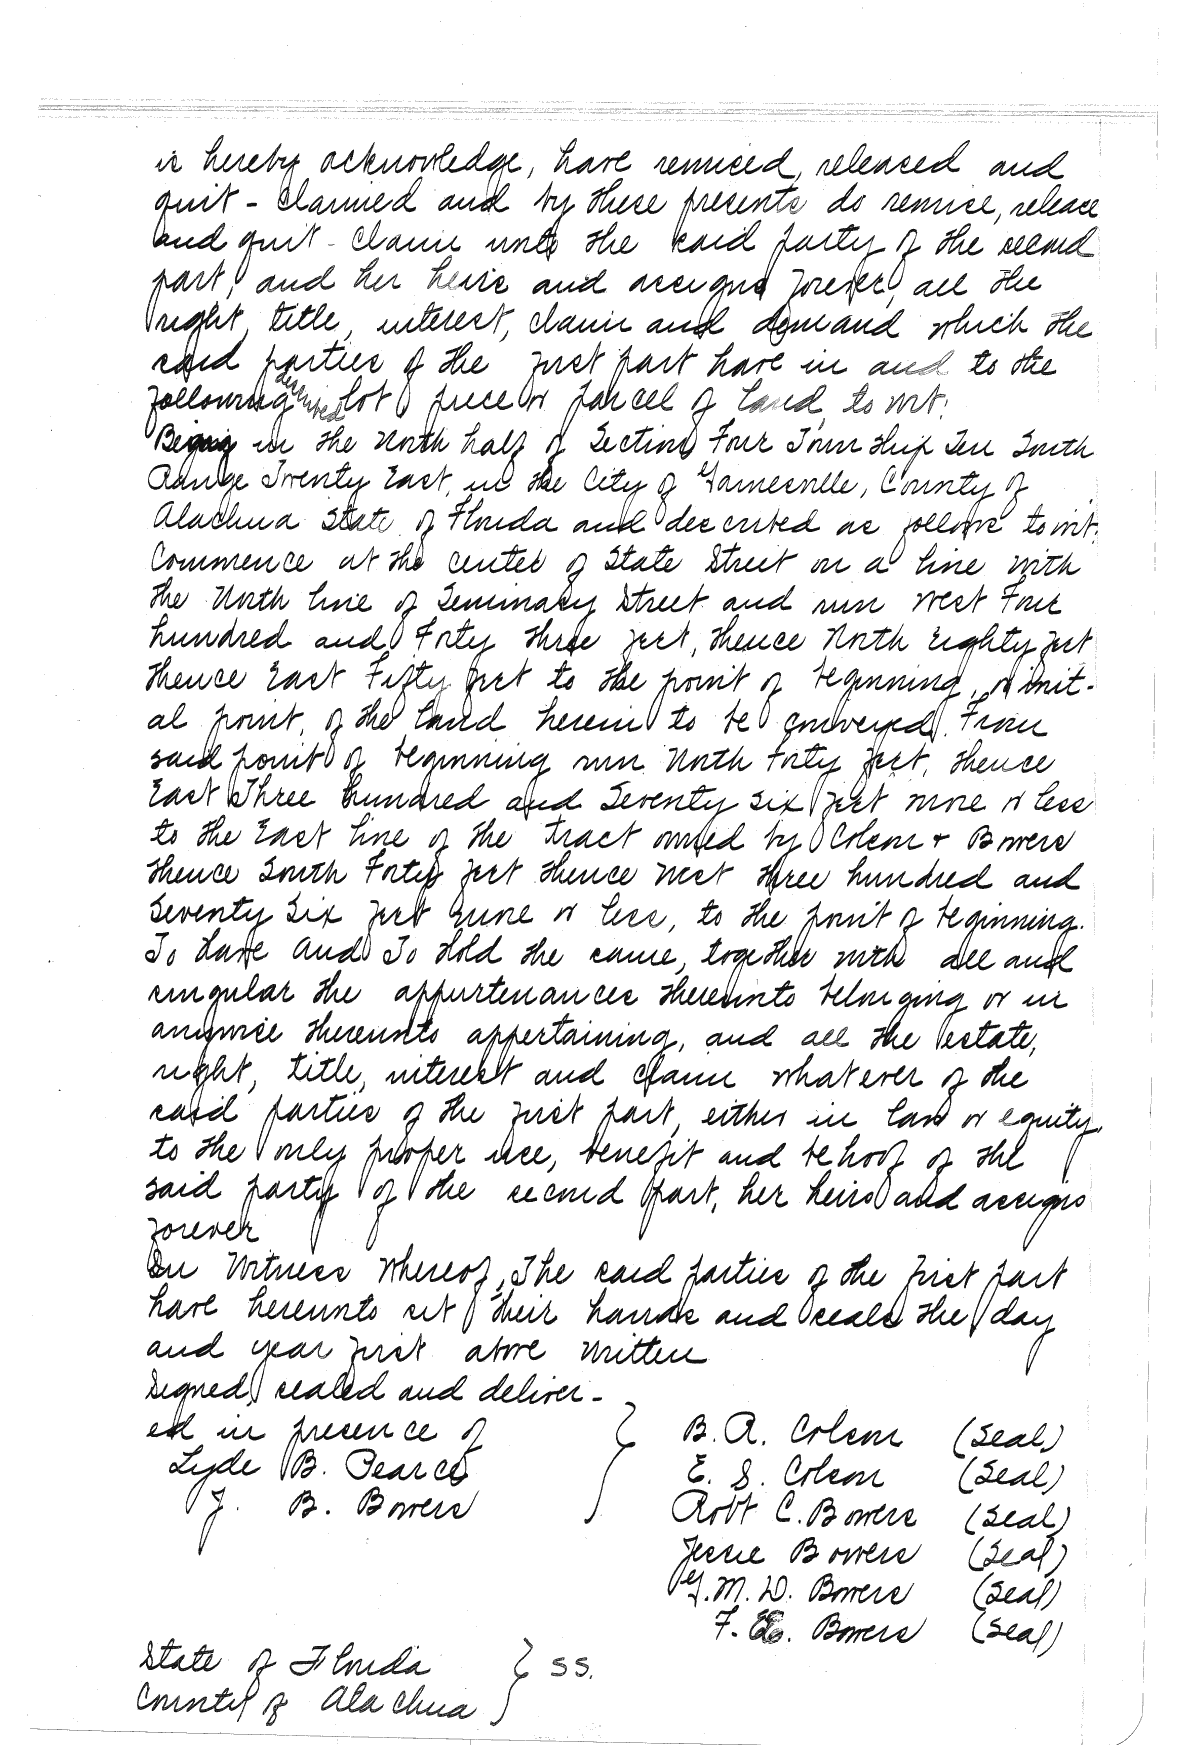 is hereby acknowledge, have remised, released and
quit - claimed and by these presents do remise, release
and quit - claim unto the said party of the second
part, and her heirs and assigns forever, all the
right, title, interest, claim and demand which the
said parties of the first part have in and to the
following described lot, piece or parcel of land, to wit:
in the North half of Section Four Town ship Ten South
Range Twenty East, in the City of Gainesville, County of
Alachua State of Florida and described as follows to wit:
Commence at the center of State Street on a line with
the North line of Seminary Street and run West Four
hundred and Forty three feet, thence North Eighty feet
thence East Fifty feet to the point of beginning, or init-
al point, of the land herein to be conveyed. From
said point of beginning run North Forty feet, thence
East Three hundred and Seventy Six feet more or less
to the East line of the Tract owned by Colson + Bowers
thence South Forty feet thence West three hundred and
Seventy Six feet more or less, to the point of beginning.
To Have And To Hold the same, together with all and
singular the appurtenances thereunto belonging or in
anywise thereunto appertaining, and all the estate,
right, title, interest and claim whatever of the
said parties of the first part, either in law or equity,
to the only proper use, benefit and behoof of the
said party of the second part, her heirs and assigns
forever
In Witness Whereof, The said parties of the first part
have hereunto set their hands and seals the day
and year first above written
Signed, sealed and deliver-
ed in presence of
Lyde B. Pearce
J. B. Bowers
B. A. Colson (Seal)
E. S. Colson (Seal)
Robt C. Bowers (Seal)
Jessie Bowers (Seal)
G. M. D. Bowers (Seal)
F. E. Bowers (Seal)
State of Florida } SS.
County of Alachua